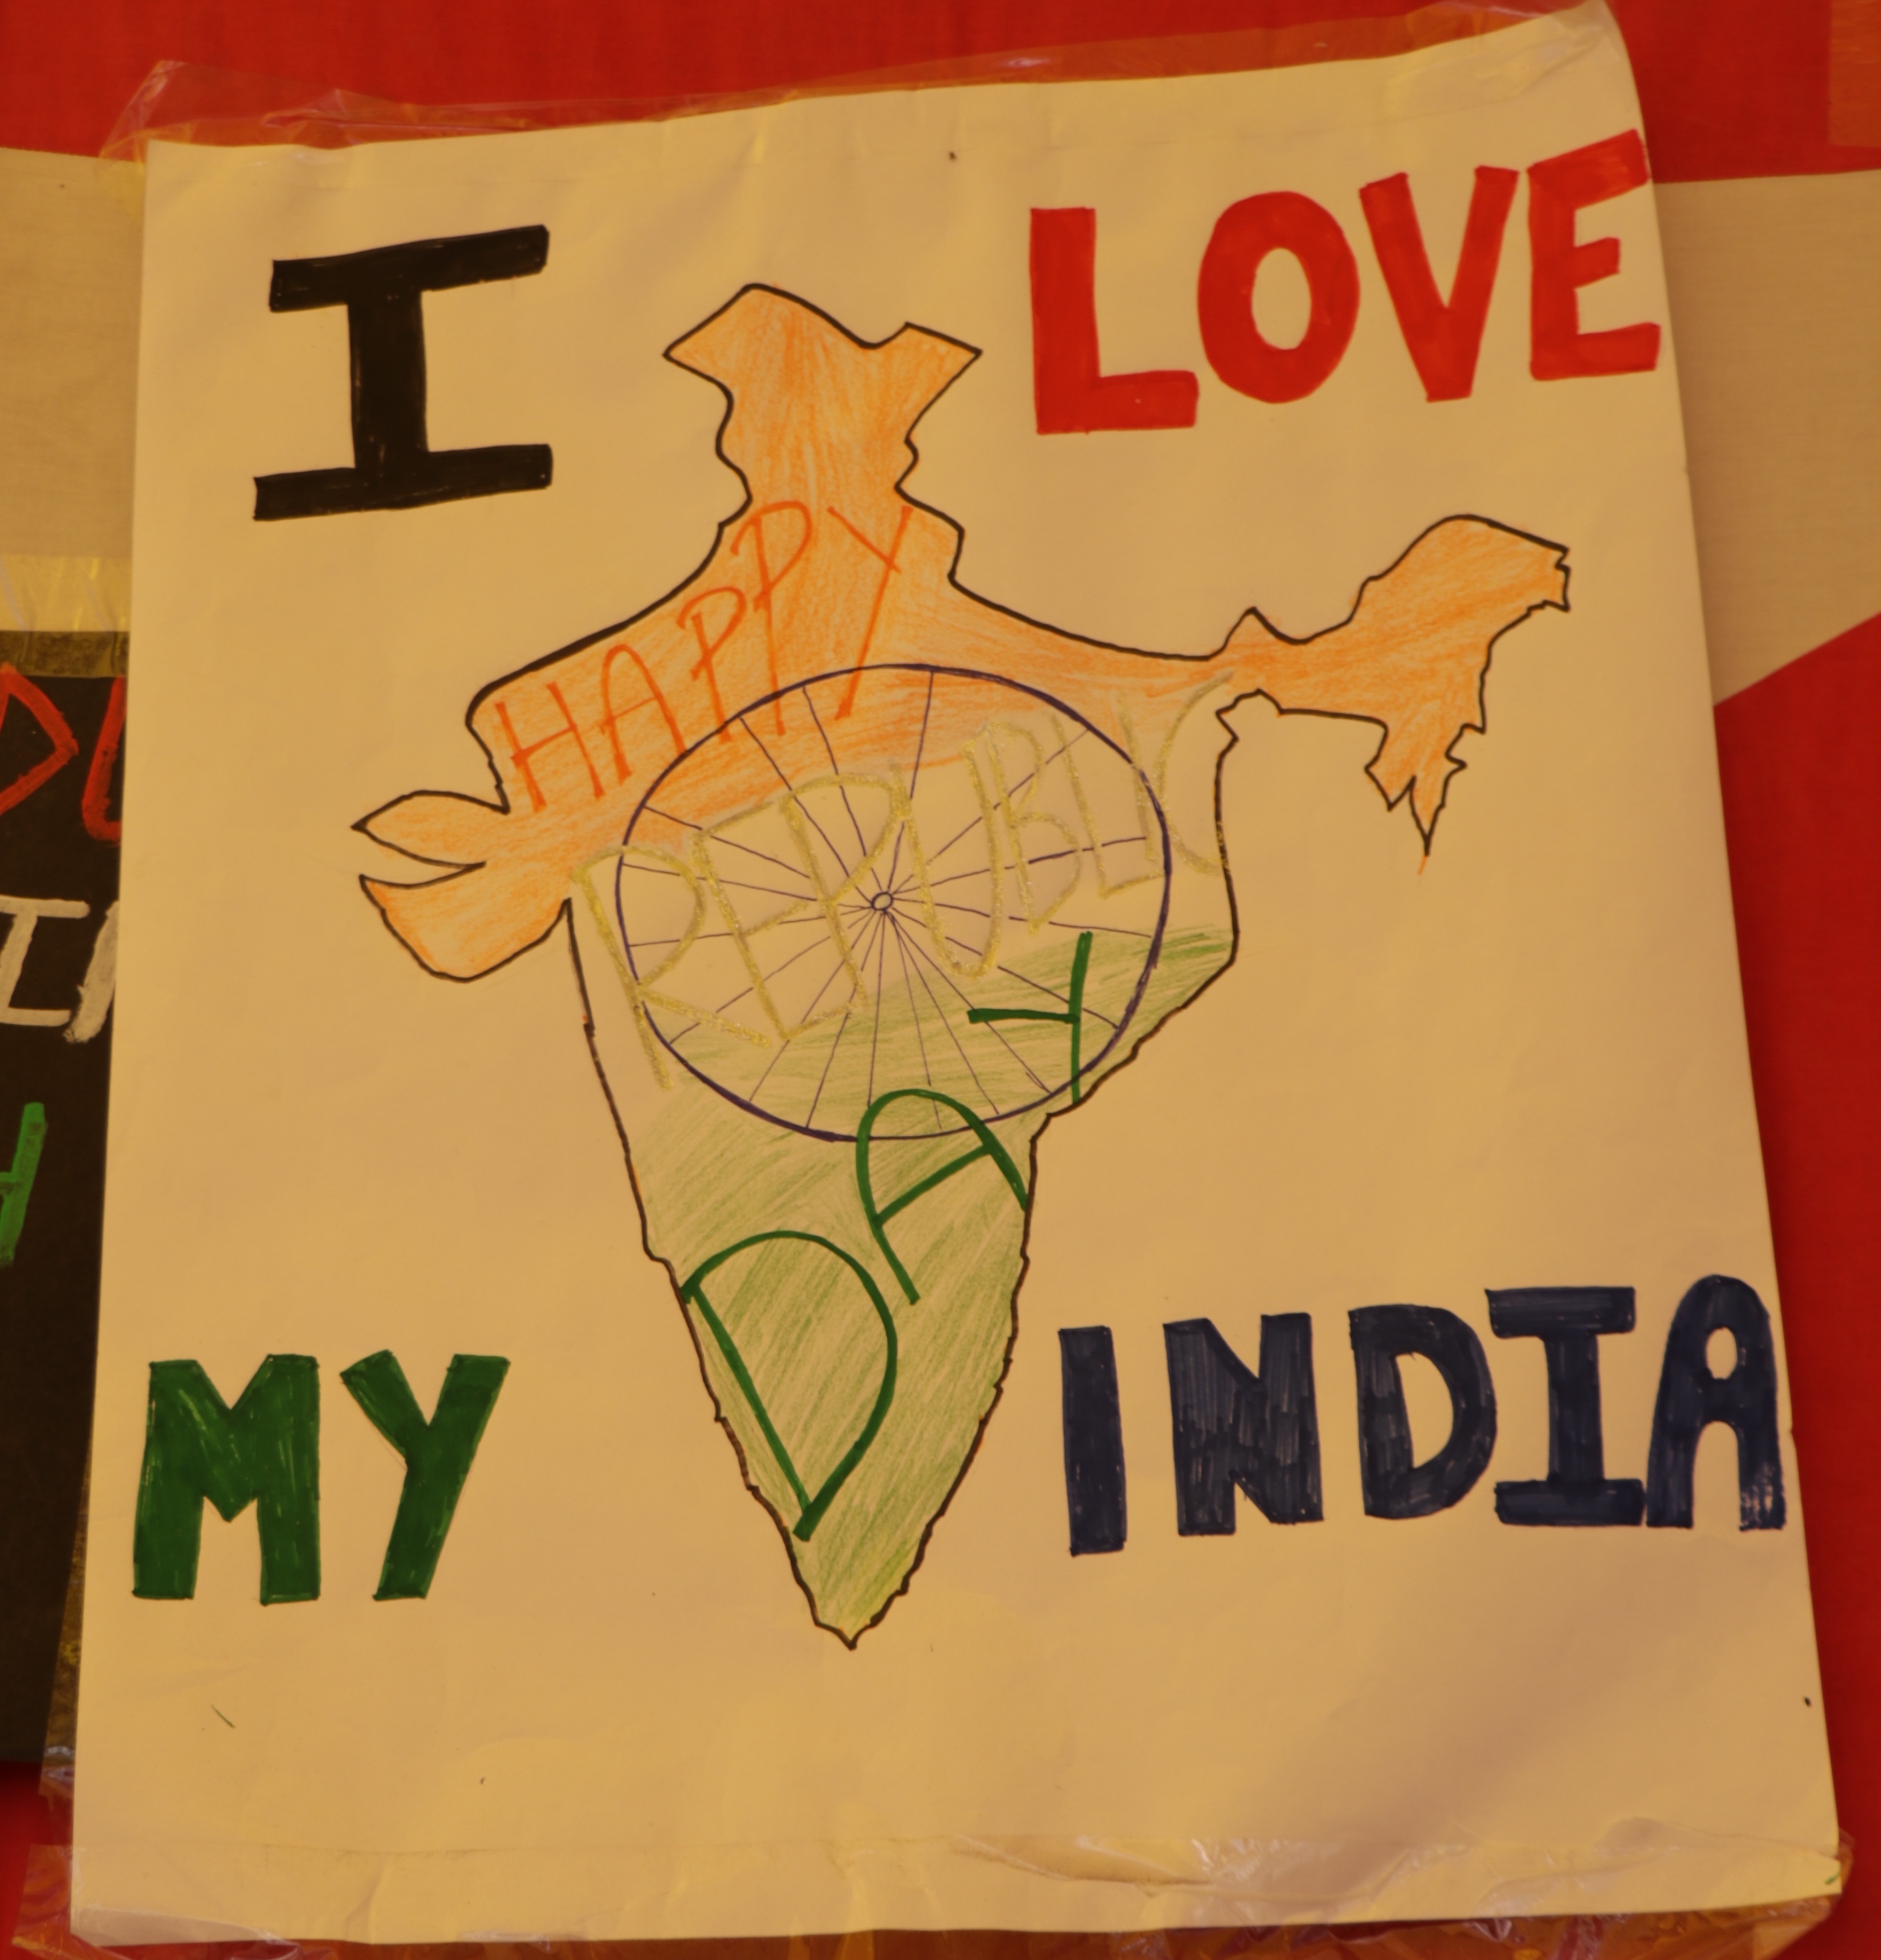 I LOVE
HAPPY
REPUBLIC
DAY
MY INDIA